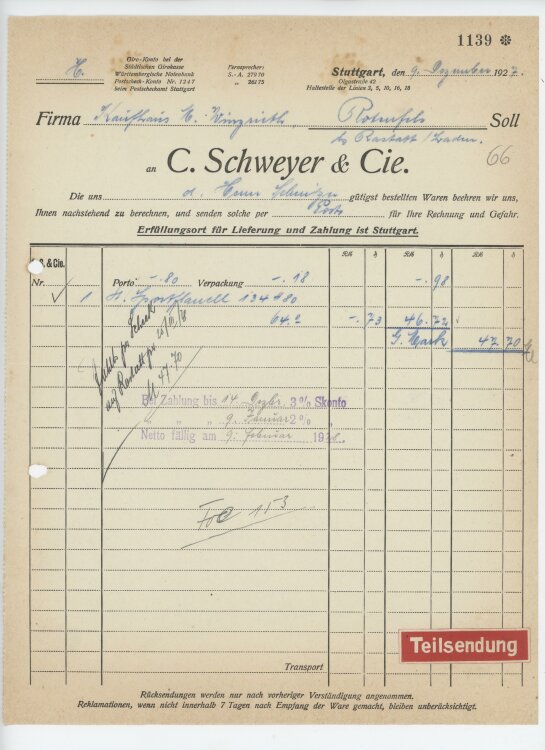 1139 ✻
H.
Giro-Konto bei der
Städtischen Girokasse
Württembergische Notenbank
Postscheck-Konto Nr. 1247
beim Postscheckamt Stuttgart
Fernsprecher:
S.-A. 27970
„ 26175
Stuttgart, den 9. Dezember 1927.
Olgastraße 42
Haltestelle der Linien 2, 5, 10, 16, 18
Firma Kaufhaus Rotenfels Soll
bs Rastatt / Baden.
66
an C. Schweyer & Cie.
Die uns d. Herrn gütigst bestellten Waren beehren wir uns,
Ihnen nachstehend zu berechnen, und senden solche per Post für Ihre Rechnung und Gefahr.
Erfüllungsort für Lieferung und Zahlung ist Stuttgart.
S. & Cie. RM ₰ RM ₰ RM ₰
Nr. Porto -.80 Verpackung -.18 -.98
1 St. Sportflanell 134 980
64.2 -.73 46.72
G. Mark 47.70
auf Rastatt
M 47.70
Bei Zahlung bis 14. Dezbr. 3% Skonto
„ „ „ 9. Januar 2% „
Netto fällig am 9. Februar 1928.
153
Teilsendung
Transport
Rücksendungen werden nur nach vorheriger Verständigung angenommen.
Reklamationen, wenn nicht innerhalb 7 Tagen nach Empfang der Ware gemacht, bleiben unberücksichtigt.